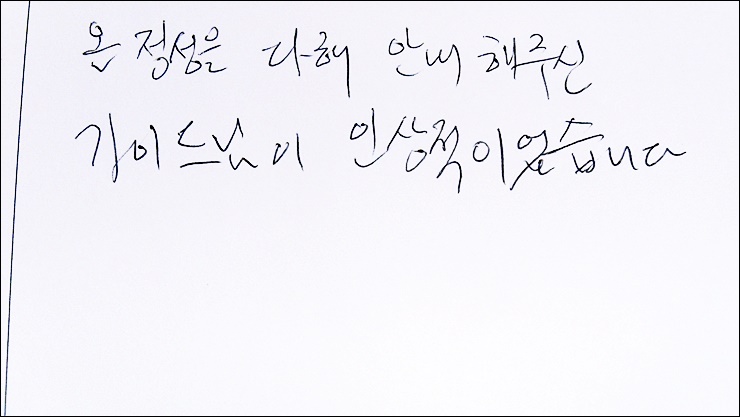 온 정성을 다해 안내 해주신
가이드님이 인상적이었습니다